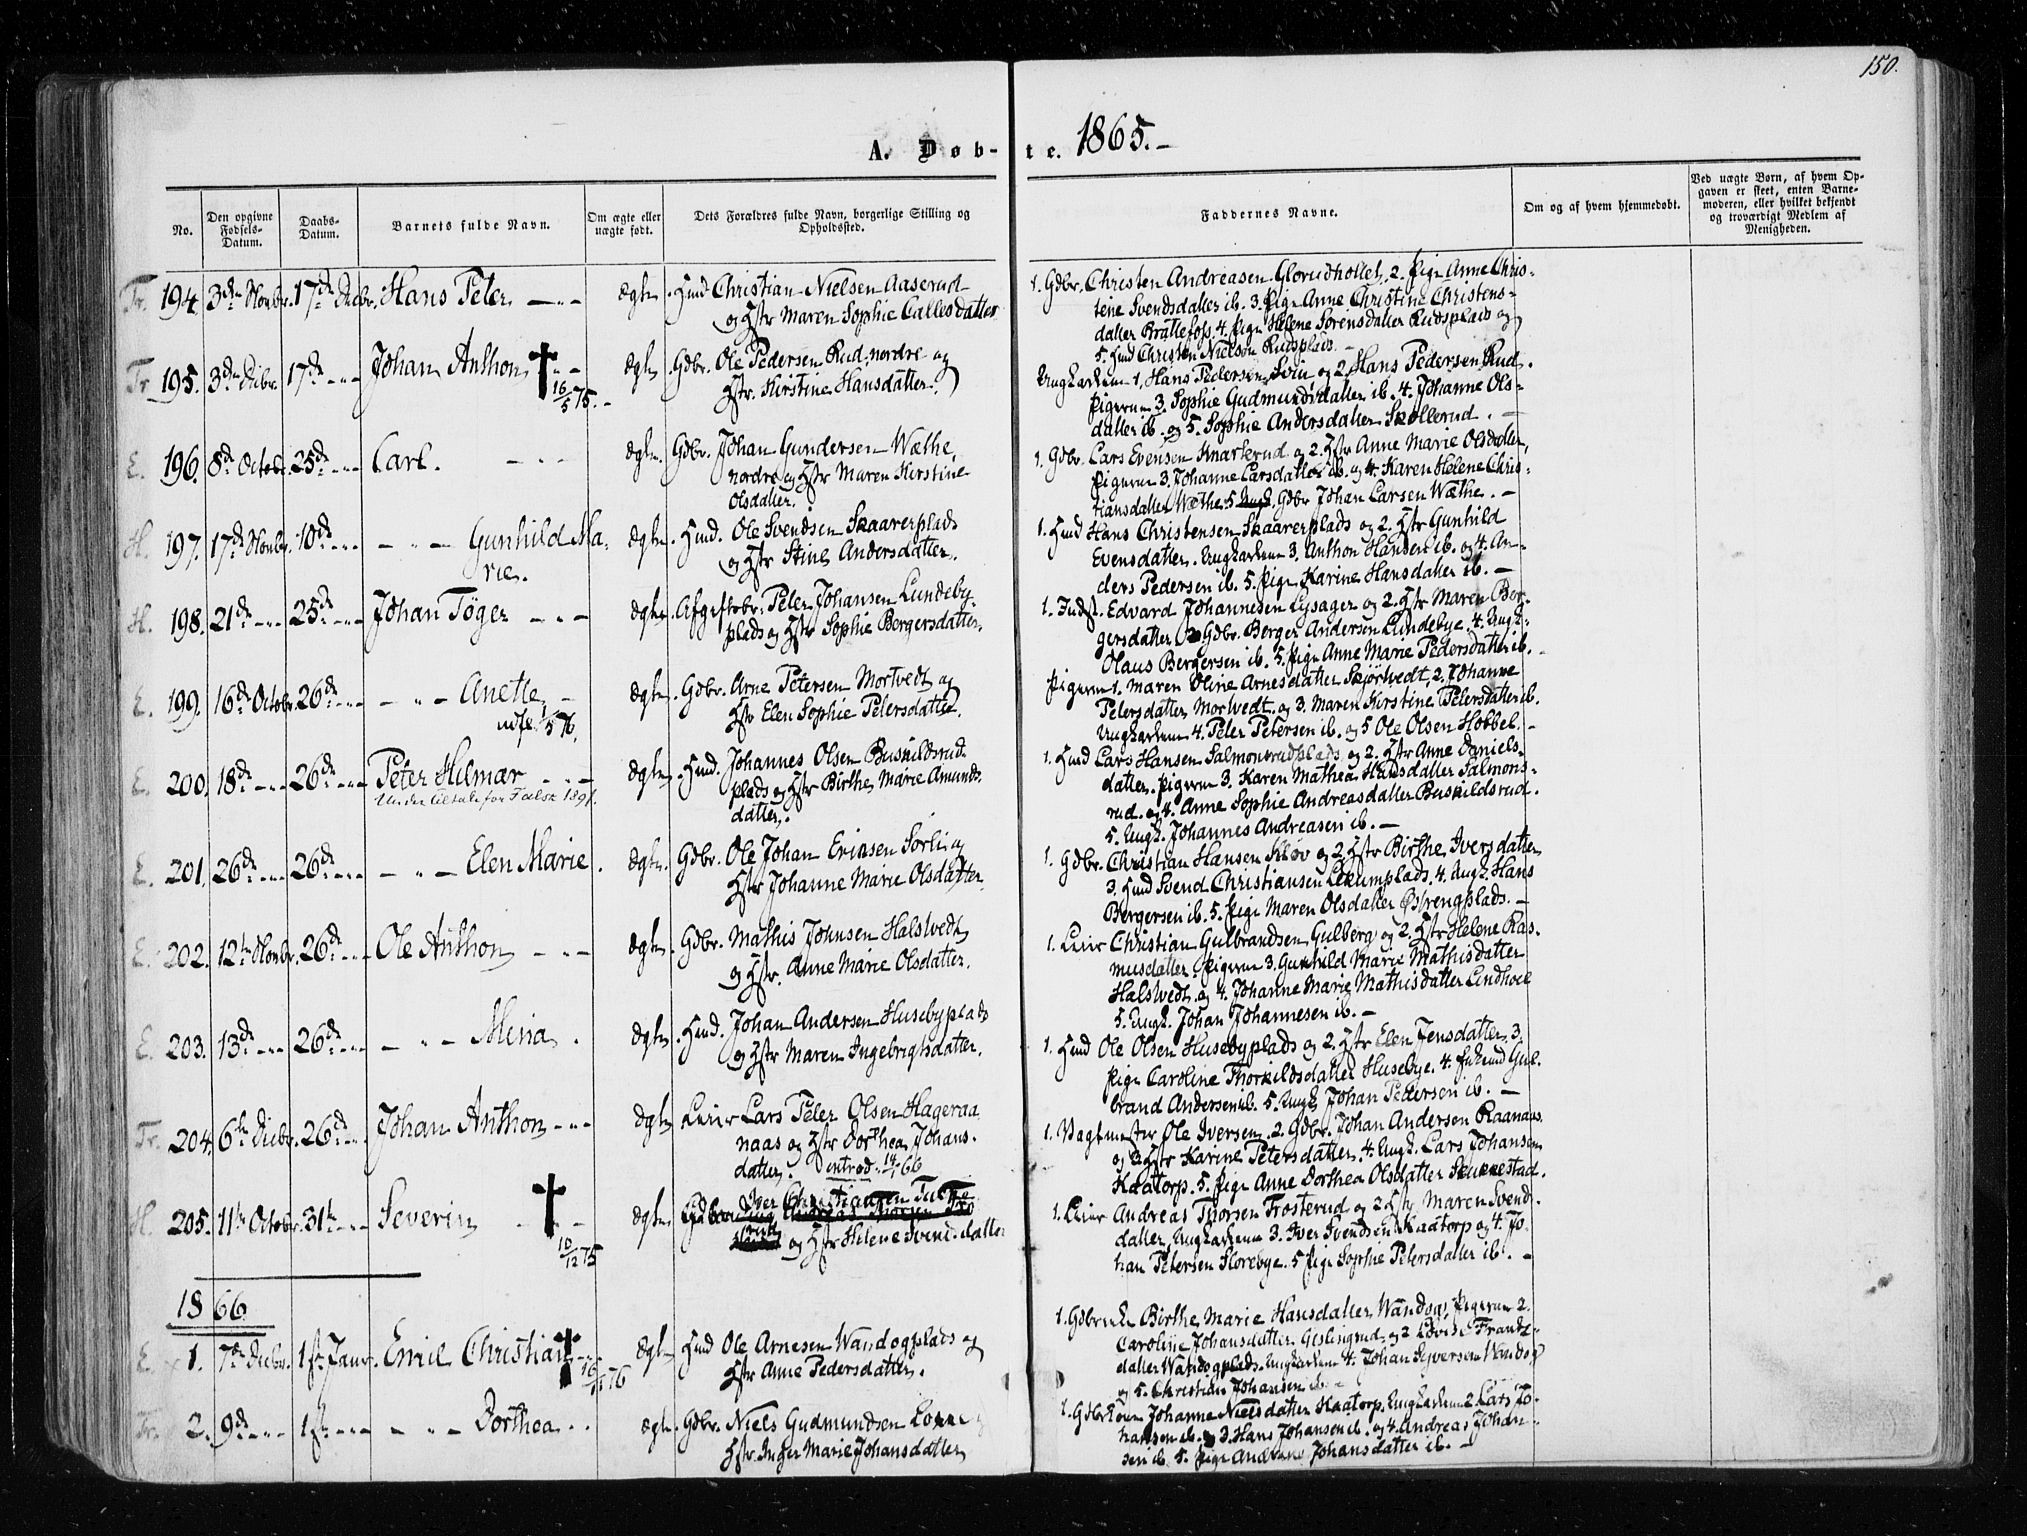 150.
A. Døb-te. 1865.-
No.
Den opgivne Fødsels-Datum.
Daabs-Datum.
Barnets fulde Navn.
Om ægte eller uægte født.
Dets Forældres fulde Navn, borgerlige Stilling og Opholdssted.
Faddernes Navne.
Om og af hvem hjemmedøbt.
Ved uægte Børn, af hvem Op-
gaven er skeet, enten Barne-
moderen, eller hvilket bekjendt
og troværdigt Medlem af
Menigheden.
Tr. 194. 3die Novbr. 17de Decbr. Hans Peter ægte. Hmd Christian Nielsen Aaserud
og Hstr Maren Sophie Callesdatter
1. Gdbr. Christen Andreasen Glorudhollet, 2. Pige Anne Chris-
tine Svendsdatter ib. 3. Pige Anne Christine Christens-
datter Brattefoss 4. Pige Helene Sørensdatter Rudsplads og
5. Hmd Christen Nielsen Rudsplads.
Tr. 195. 3die Decbr. 17de Johan Anthon † 16/5 75. ægte. Gdbr. Ole Pedersen Rud, nordre og
Hstr. Kirstine Hansdatter.
Ungkarlene 1. Hans Pedersen Svin og 2. Hans Pedersen Rud.
Pigerne 3. Sophie Gudmundsdatter ib. 4. Johanne Ols-
datter ib. og 5. Sophie Andersdatter Skollerud.
E. 196. 8de Octobr. 25de Carl. ægte. Gdbr. Johan Gundersen Wæthe,
nordre og Hstr Maren Kirstine
Olsdatter.
1. Gdbr. Lars Evensen Knarkerud og 2. Hstr Anne Marie Olsdatter,
Pigerne 3. Johanne Larsdatter ib. og 4. Karen Helene Chris-
tiansdatter Wæthe 5. Ungk. Gdbr Johan Larsen Wæthe.
H. 197. 17de Novbr. 10de Gunhild Ma-
rie. ægte. Hmd. Ole Svendsen Skaarerplads
og Hstr Stine Andersdatter.
1. Hmd Hans Christensen Skaarerplads og 2. Hstr Gunhild
Evensdatter. Ungkarlene 3. Anthon Hansen ib. og 4. An-
ders Pedersen ib. 5. Pige Karine Hansdatter ib.
H. 198. 21de 25de Johan Töger ægte. Afgiftsbr. Peter Johansen Lundeby-
plads og Hstr Sophie Bergersdatter.
1. Indst. Edvard Johannesen Lysager og 2. Hstr Maren Ber-
gersdatter 3. Gdbr. Berger Andersen Lundebye. 4. Ungk.
Olaus Bergersen ib. 5. Pige Anne Marie Pedersdatter ib.
E. 199. 16de Octobr. 26de Anette
udfl. 1/5 76. ægte. Gdbr. Arne Petersen Mortvedt og
Hstr Elen Sophie Petersdatter.
Pigerne 1. Maren Oline Arnesdatter Skjørtvedt, 2. Johanne
Petersdatter Mortvedt og 3. Maren Kirstine Petersdatter ib.
Ungkarlene 4. Peter Petersen ib. og 5 Ole Olsen Hobbel.
E. 200. 18de 26de Peter Hilmar
Under tiltale for Falsk 1891. ægte. Hmd. Johannes Olsen Buskildsrud-
plads og Hstr Birthe Marie Amunds-
datter.
1. Hmd Lars Hansen Salmonsrudplads og 2. Hstr Anne Daniels-
datter. Pigerne 3. Karen Mathea Hansdatter Salmons-
rud og 4. Anne Sophie Andreasdatter Buskildsrud.
5. Ungk. Johannes Andreasen ib.
E. 201. 26de 26de Elen Marie. ægte. Gdbr. Ole Johan Eriksen Sørli og
Hstr Johanne Marie Olsdatter.
1. Gdbr. Christian Hansen Kløv og 2. Hstr Birthe Iversdatter
3. Hmd Svend Christiansen Lekumplads. 4. Ungk. Hans
Bergersen ib. 5. Pige Maren Olsdatter Østrengplads.
E. 202. 12te Novbr. 26de Ole Anthon ægte. Gdbr. Mathis Johnsen Halstvedt
og Hstr. Anne Marie Olsdatter.
1. Leier Christian Gulbrandsen Gulberg og 2. Hstr Helene Ras-
musdatter. Pigerne 3. Gunhild Marie Mathisdatter
Halstvedt. og 4. Johanne Marie Mathisdatter Lindhoel
5. Ungk. Johan Johannesen ib.
E. 203. 13de 26de Mina. ægte. Hmd. Johan Andersen Husebyplads
og Hstr Maren Ingebrigtsdatter.
1. Hmd Ole Olsen Husebyplads og 2. Hstr Elen Jensdatter 3.
Pige Caroline Thorkildsdatter Husebye. 4. Enkemd Gul-
brand Andersen ib. 5. Ungk. Johan Pedersen ib.
Tr. 204. 6te Decbr. 26de Johan Anthon ægte. Leier Lars Peter Olsen Hageraa-
naas og Hstr Dorthea Johans-
datter. introd. 14/1 66
1. Vagtmester Ole Iversen. 2. Gdbr. Johan Andersen Raanaas
og 3. Hstr Karine Petersdatter. 4. Ungk. Lars Johansen
Kaatorp. 5. Pige Anne Dorthea Olsdatter Skukkestad.
H. 205. 11te Octobr. 31te Severin † 10/12 75 ægte. Iver Christiansen
og Hstr Helene Svendsdatter
1. Leier Andreas Thorsen Trosterud og 2. Hstr Maren Svends-
datter, Ungkarlene 3. Iver Svendsen Kaatorp og 4. Jo-
han Petersen Slorebye. 5 Pige Sophie Petersdatter ib.
1866.
E. 1. 7de Decbr. 1ste Janr. Emil Christian † 16/ 76 ægte. Hmd Ole Arnesen Wandogplads og
Hstr Anne Pedersdatter.
1. Gdbr Birthe Marie Hansdatter Wandog, Pigerne 2.
Caroline Johansdatter Geslingrud og 2 Lovise Frants-
datter Wandogplads. Ungkarlene 4. Johan Syversen Wandog
og 5. Christian Johansen ib.
Tr. 2. 9de 1ste Dorthea. ægte. Gdbr. Niels Gudmundsen
Hstr. Inger Marie Johansdatter
1. Gdbr Johanne Nielsdatter Kaatorp. Ungkarlene 2. Lars Jo-
hansen ib. og 3. Hans Johansen ib. og 4. Andreas Johan-
sen ib. 5. Pige Andrine Johansdatter ib.